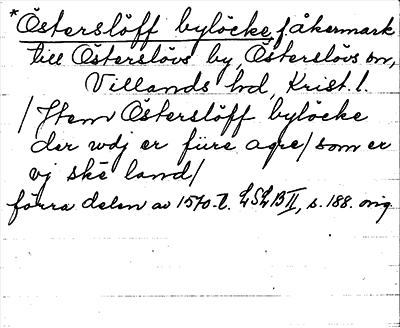 *Österslöff bylöcke, f. åkermark
till Österslövs by, Österslövs sn,
Villands hd, Krist. l.
/Item Österslöff bylöcke
der wdj er fiire agre/som er
vj ske land/
förra delen av 1570-t. LSLB II, s. 188. orig